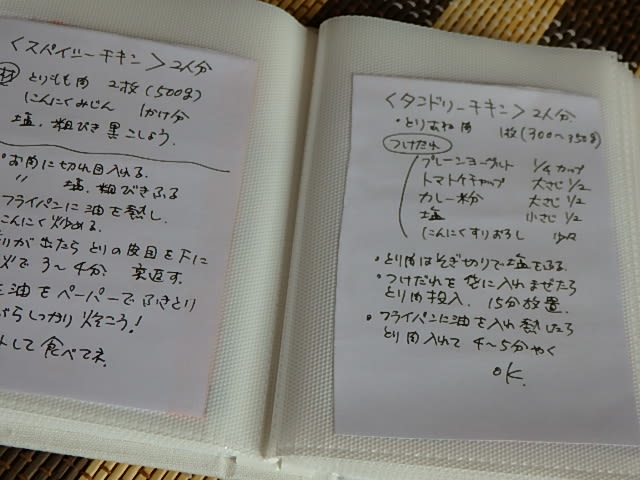 ＜スパイシーチキン＞2人分
材 とりもも肉 2枚(500g)
にんにくみじん 1かけ分
塩、粗びき黒こしょう。
お肉に切れ目入れる。
〃 塩、粗びきふる
フライパンに油を熱し、
にんにく炒める。
りが出たら とりの皮目を下に
火で 3〜4分 裏返す。
油をペーパーでふきとり
がらしっかり焼こう!
して食べてネ
＜タンドリーチキン＞2人分
・とりむね肉 1枚(300〜350g)
つけだれ
プレーンヨーグルト 1/4カップ
トマトケチャップ 大さじ1/2
カレー粉 大さじ1/2
塩 小さじ1/2
にんにくすりおろし 少々
・とり肉はそぎ切りで塩をふる。
・つけだれを袋に入れまぜたら
とり肉投入。15分放置。
・フライパンに油を入れ熱したら
とり肉入れて 4〜5分やく
OK.